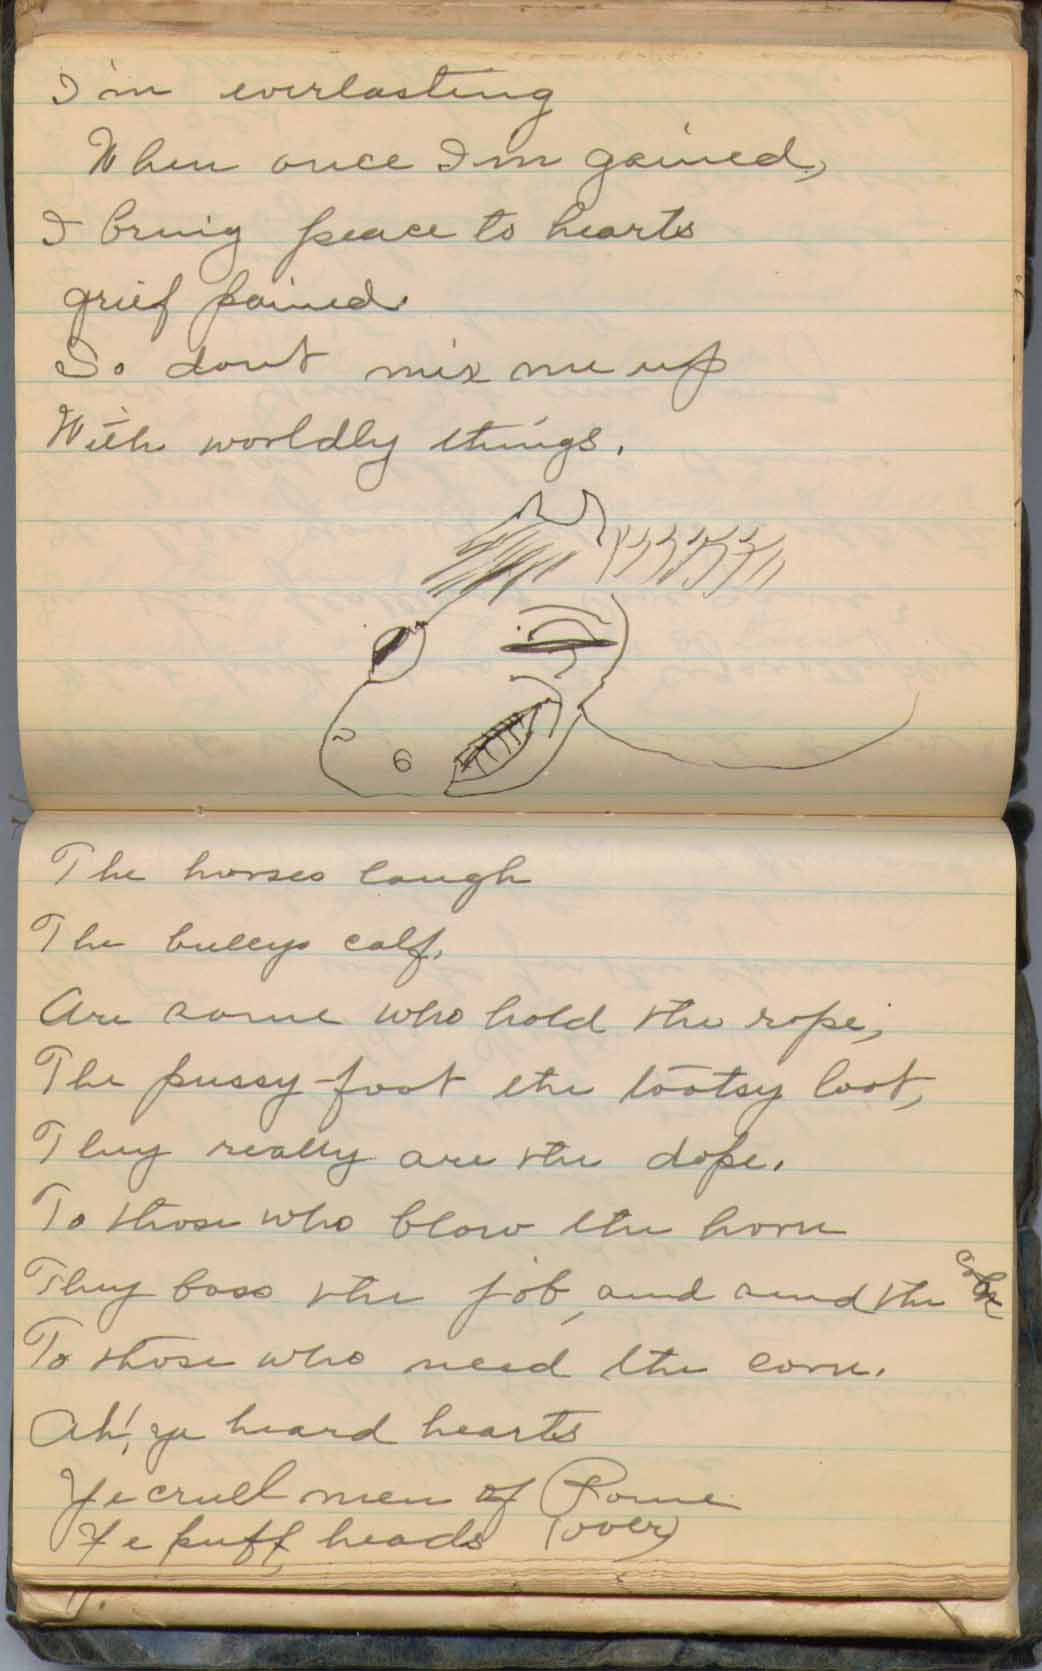 I'm everlasting
When once I'm gained,
I bring peace to hearts
grief pained.
So dont mix me up
With worldly things.
The horses laugh
The bullys calf,
Are some who hold the rope;
The pussy-foot the tootsy loot,
They really are the dope.
To those who blow the horn
They boss the job, and send the
To those who need the corn.
Ah! ye heard hearts
Ye cruel men of Rome
Ye puff heads (over)